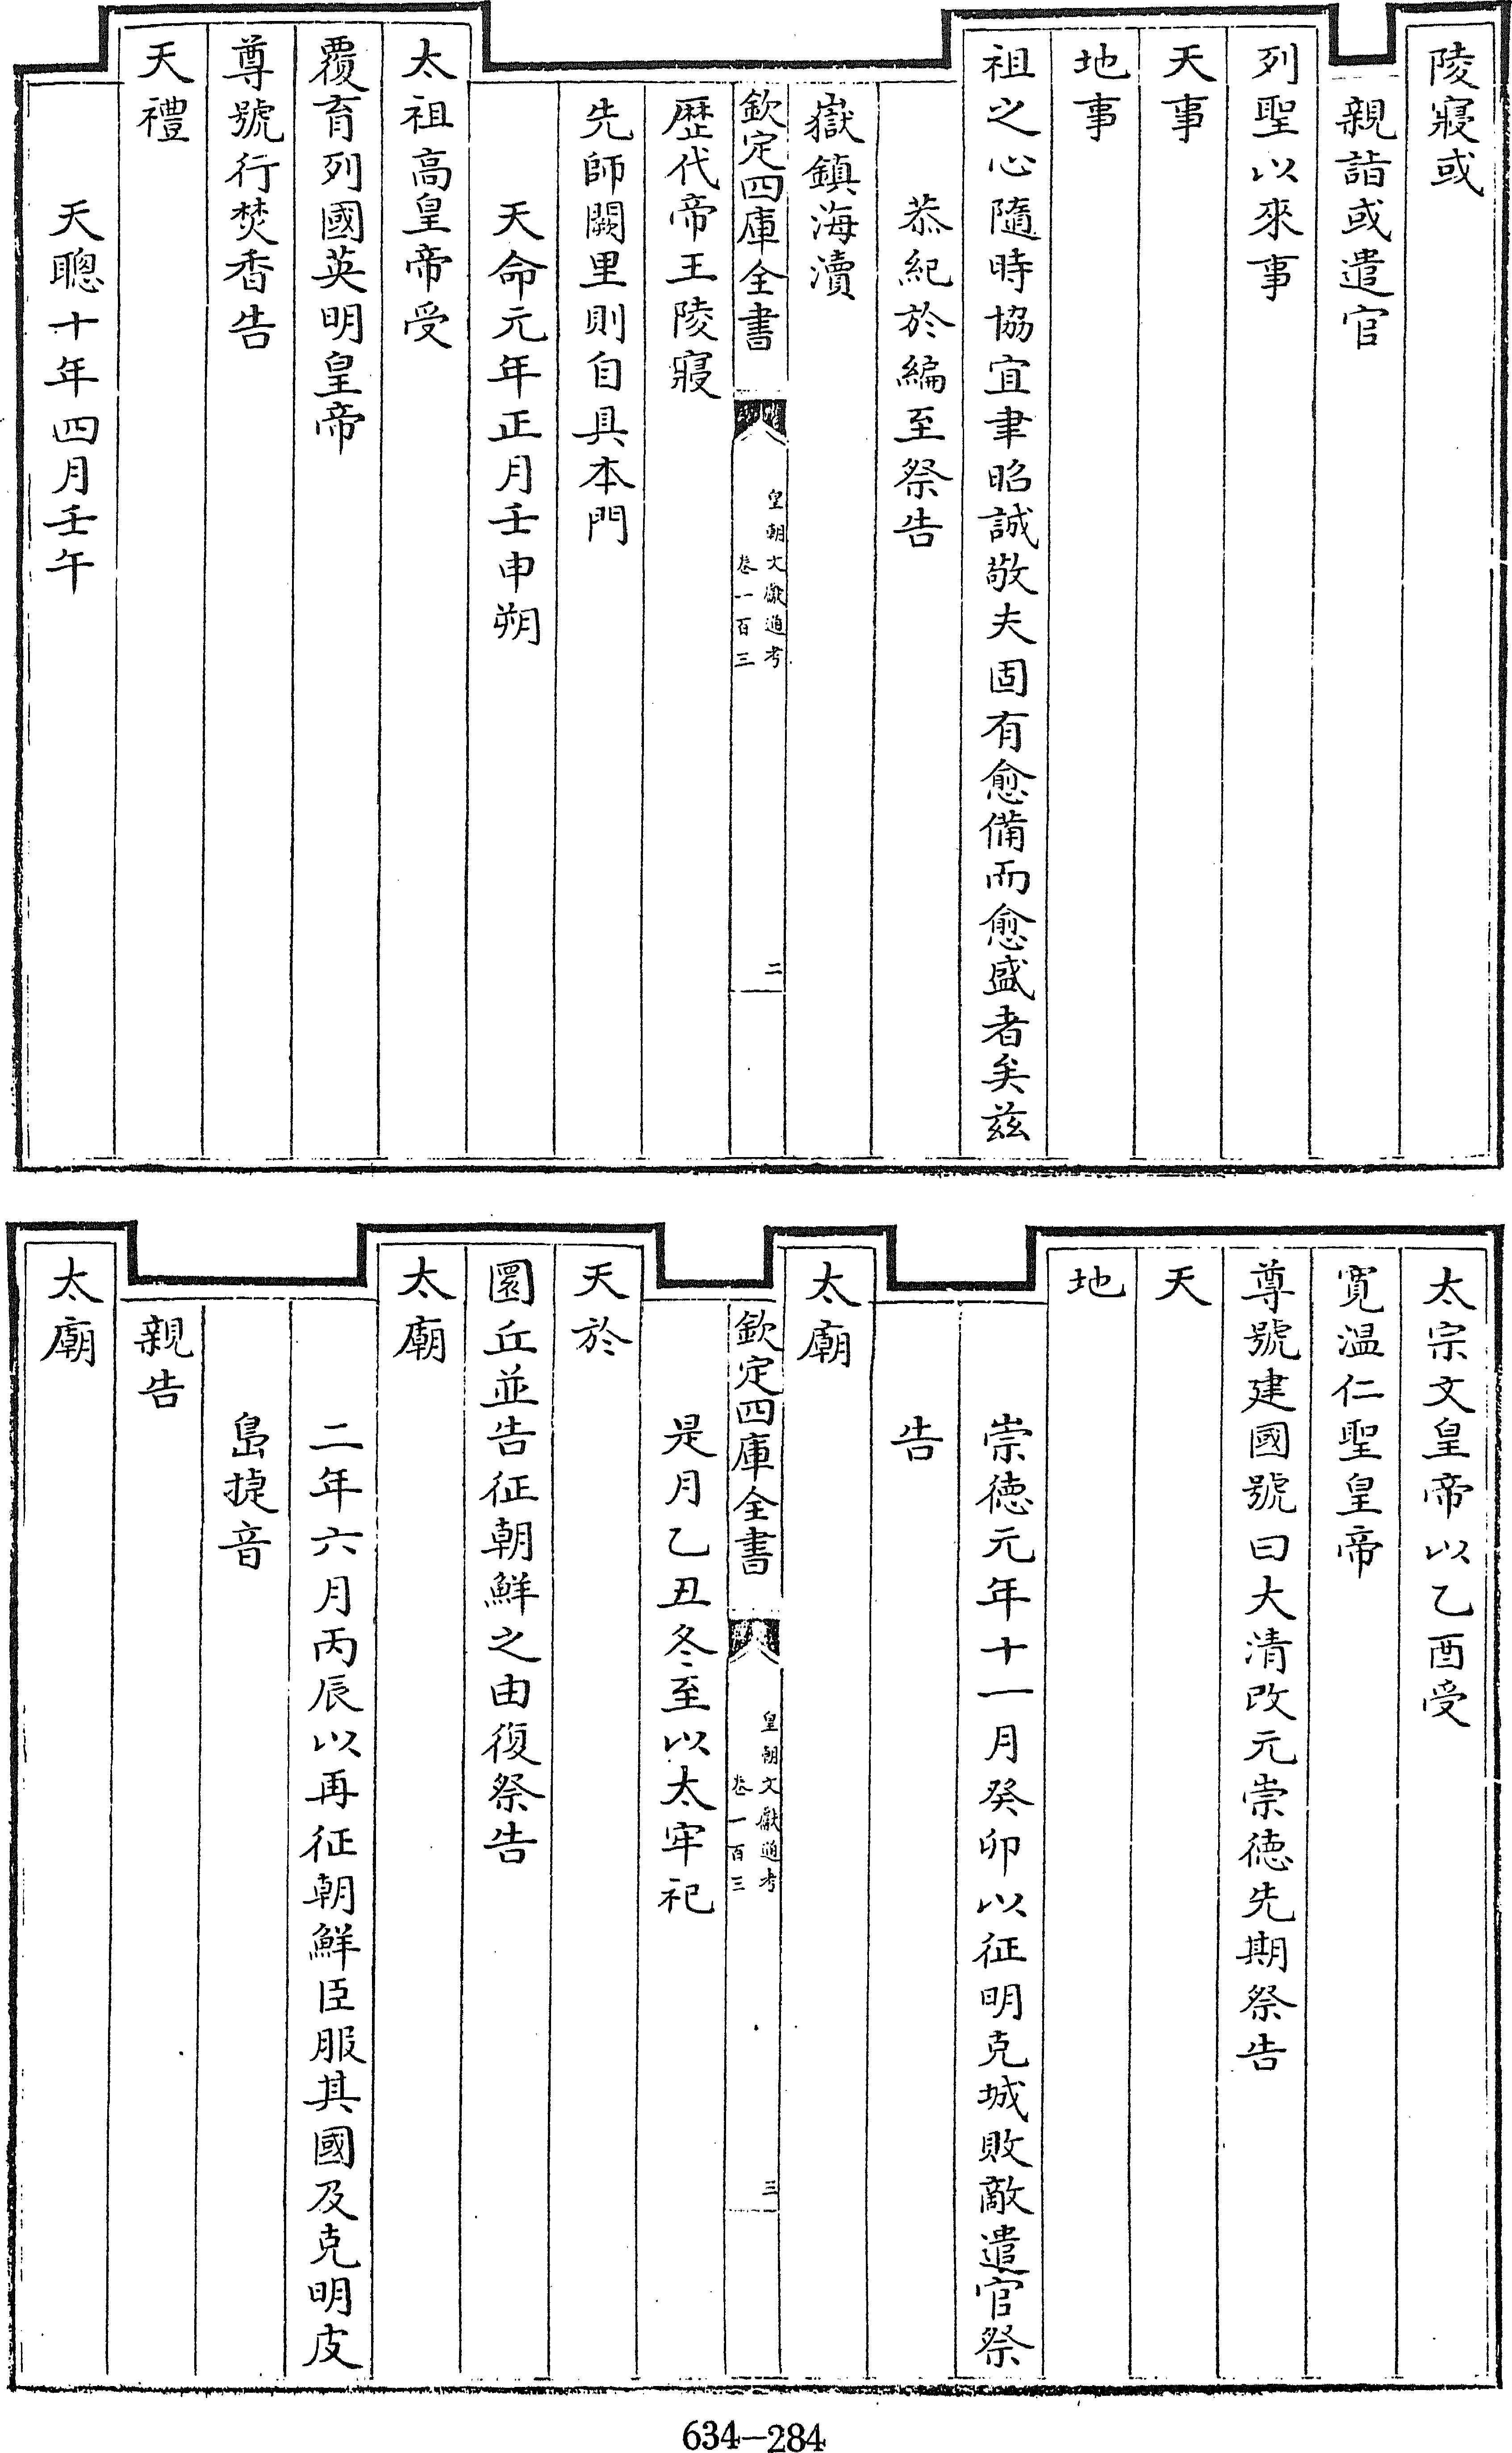 陵寢或
親詣或遣官
列聖以來事
天事
地事
祖之心隨時協宜聿昭誠敬夫固有愈備而愈盛者矣茲
恭紀於編至祭告
嶽鎮海瀆
欽定四庫全書
皇朝文獻通考
卷一百三
二
歷代帝王陵寢
先師闕里則自具本門
天命元年正月壬申朔
太祖高皇帝受
覆育列國英明皇帝
尊號行焚香告
天禮
天聰十年四月壬午
太宗文皇帝以乙酉受
寬温仁聖皇帝
尊號建國號曰大清改元崇徳先期祭告
天
地
崇徳元年十一月癸卯以征明克城敗敵遣官祭
告
太廟
欽定四庫全書
皇朝文獻通考
卷一百三
三
是月乙丑冬至以太牢祀
天於
圜丘並告征朝鮮之由復祭告
太廟
二年六月丙辰以再征朝鮮臣服其國及克明皮
島捷音
親告
太廟
634-284